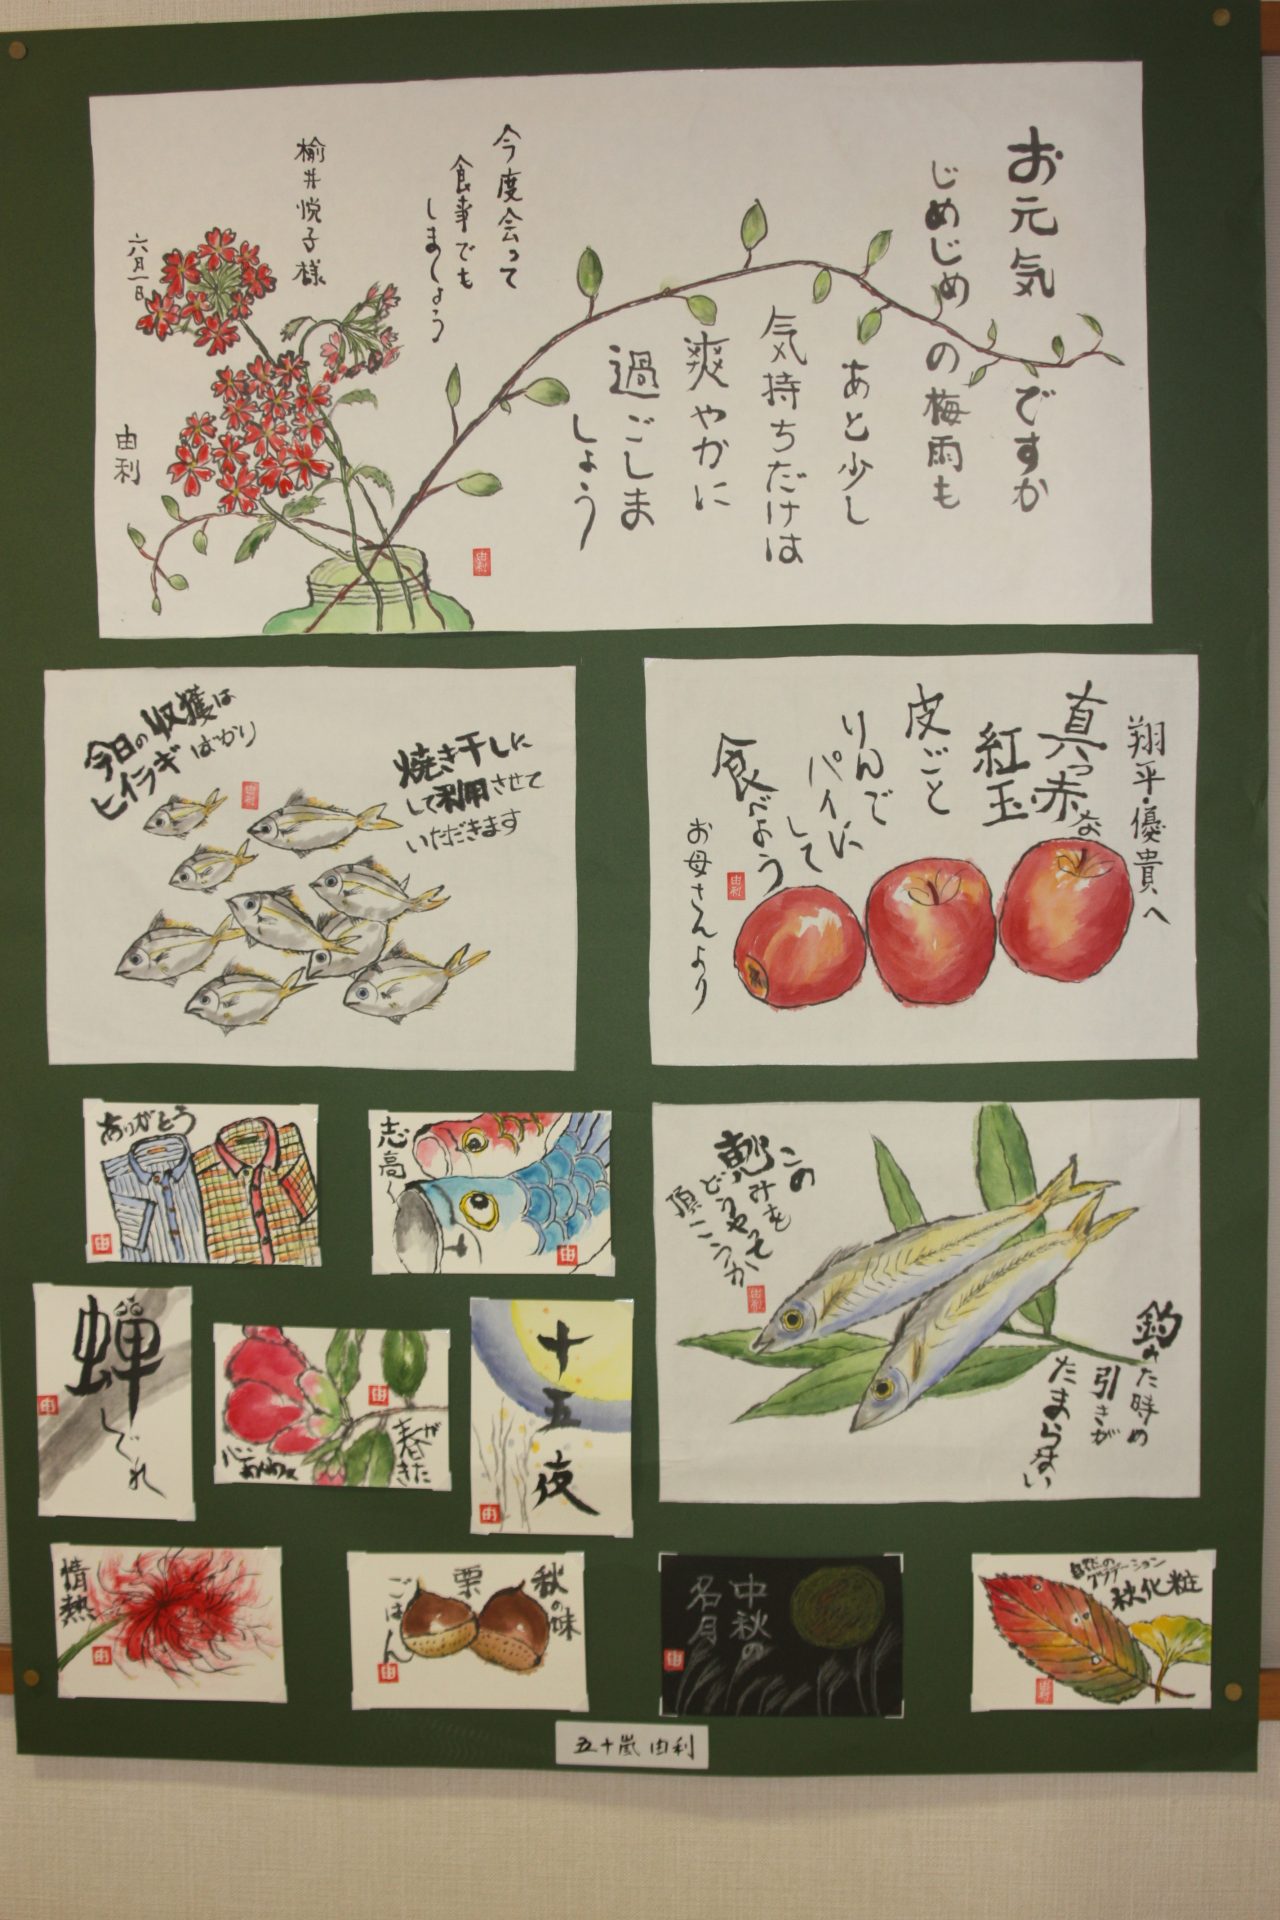 お元気ですか
じめじめの梅雨も
あと少し
気持ちだけは
爽やかに
過ごしま
しょう
今度会って
食事でも
しましょう
楡井悦子様
六月一日
由利
由利
今日の収獲は
ヒイラギばかり
焼き干しに
して利用させて
いただきます
由利
翔平・優貴へ
真っ赤な
紅玉
皮ごと
りんで
パイに
して
食べよう
お母さんより
由利
ありがとう
由
志高く
由
この
恵みを
どうやって
頂こうか
由利
釣れた時の
引きが
たまらない
蝉しぐれ
由
春が
きた
由
十五夜
由
情熱
由
秋の味
栗
ごはん
由
中秋の
名月
由
自然の
グラデーション
秋化粧
由利
五十嵐由利